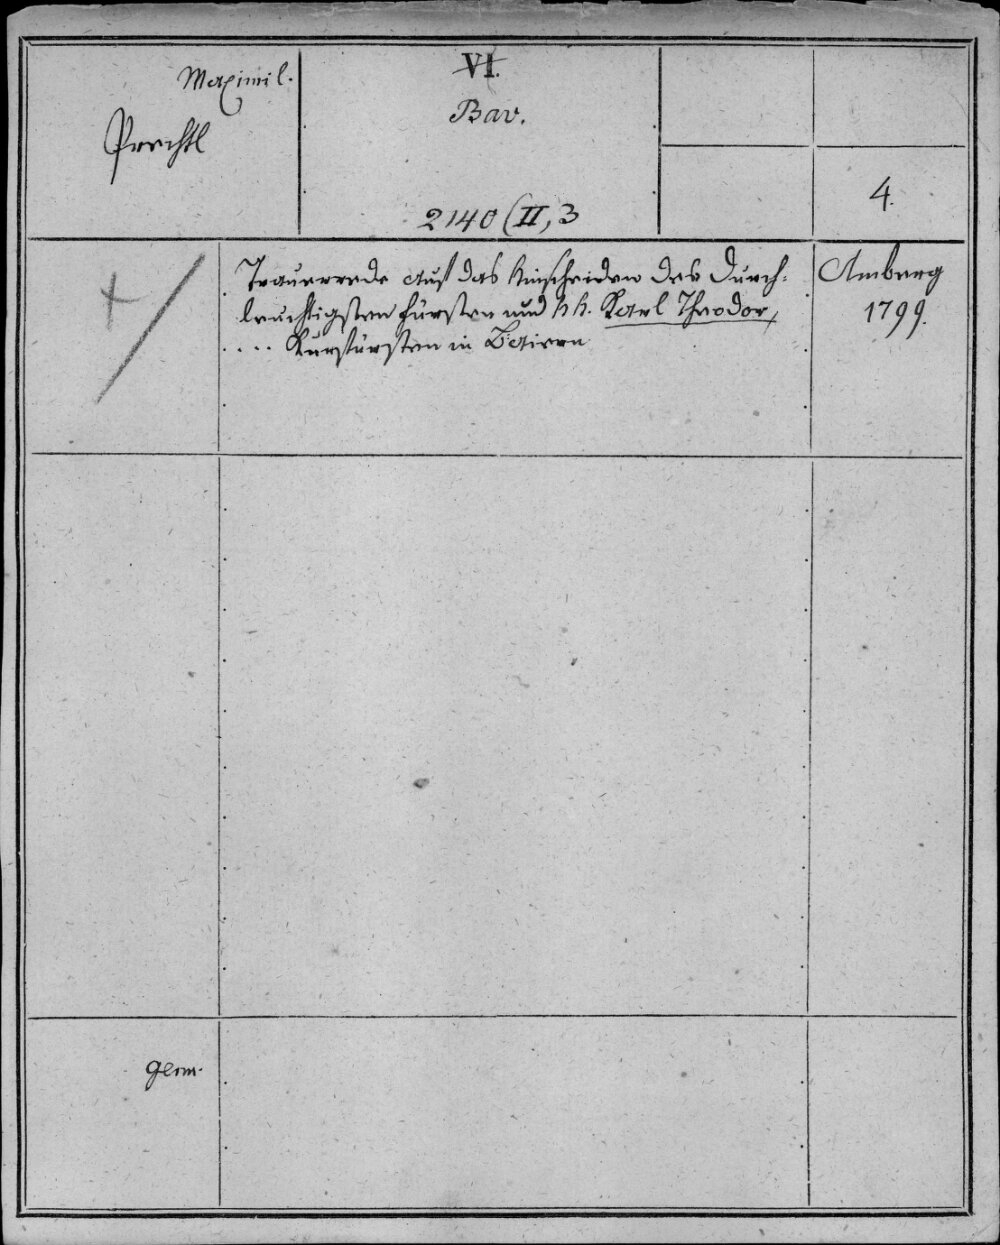 Maximil.
Prechtl
VI.
Bav.
2140 (II, 3
4.
Trauerrede auf das Hinscheiden des Durch-
leuchtigsten Fürsten und hh. Karl Theodor,
.... Kurfürsten in Baiern
Amberg
1799.
germ.